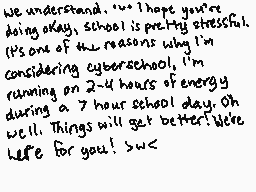 We understand. >w> I hope you're
doing okay, school is pretty stressful.
It's one of the reasons why I'm
considering cyberschool, I'm
running on 2-4 hours of energy
during a 7 hour school day. Oh
well. Things will get better! We're
here for you! >w<